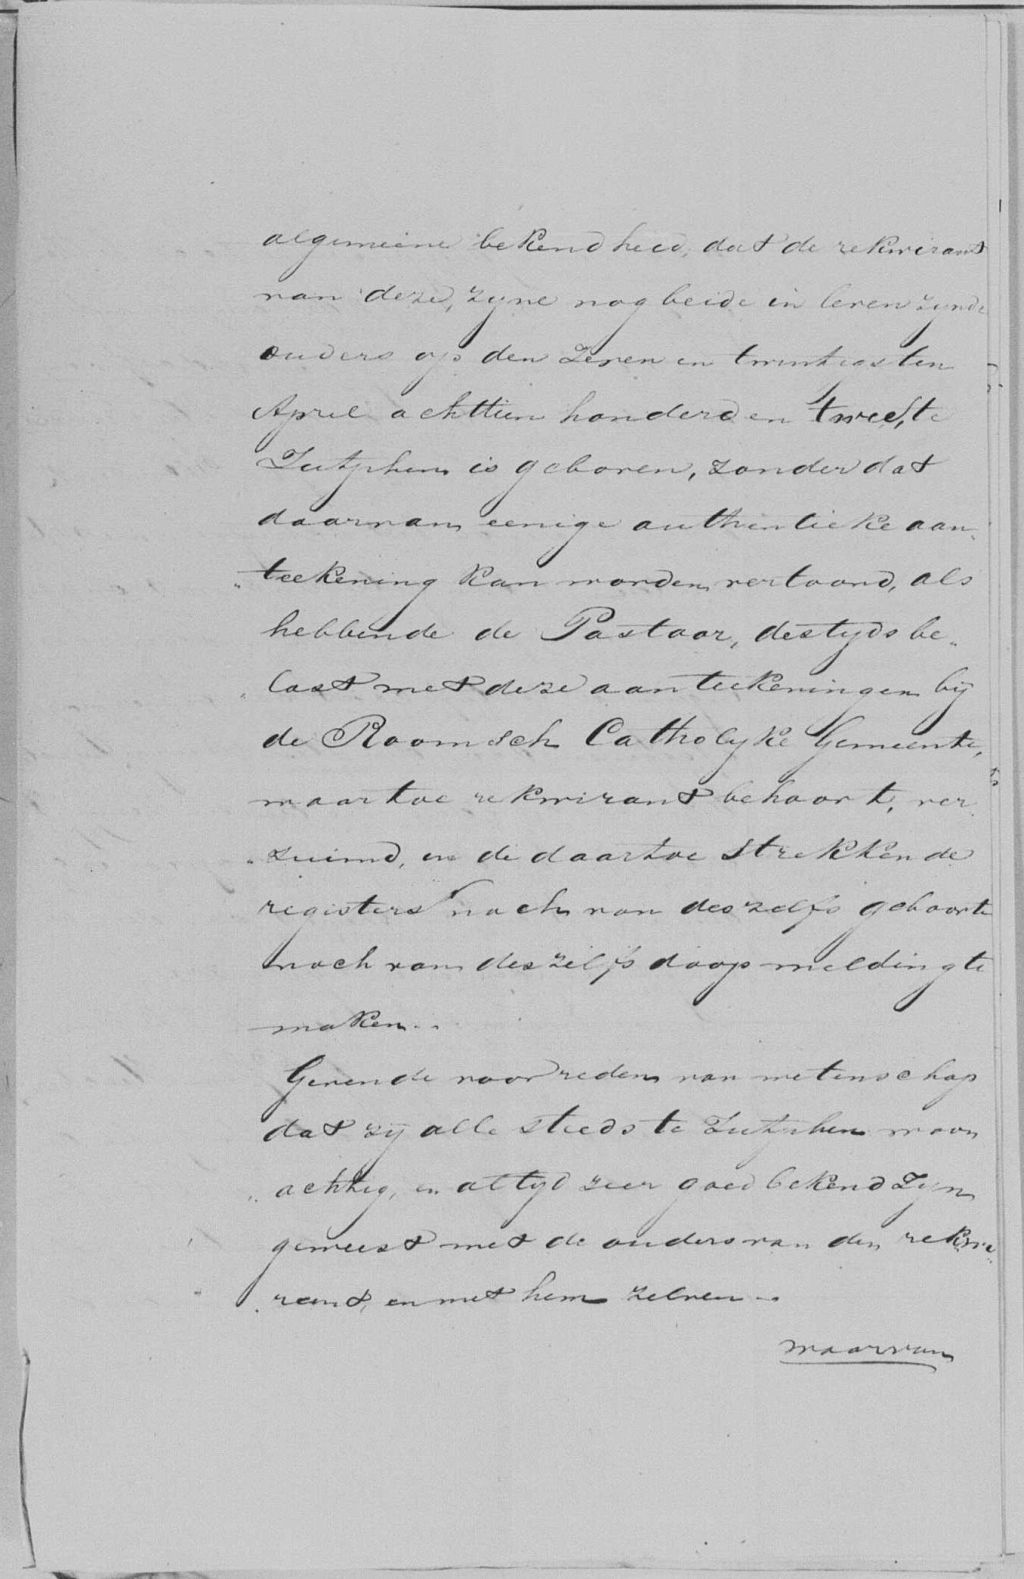 algemeene bekendheid, dat de rekwirant
van deze, zyne nog beide in leven zynde
ouders op den zeven en twintigsten
April achttien honderd en twee, te
Zutphen is geboren, zonder dat
daarvan eenige authentieke aan„
„teekening kan worden vertoond, als
hebbende de Pastoor, destyds be„
„last met deze aanteekeningen bij
de Roomsch Catholyke Gemeente,
waartoe rekwirant behoort, ver„
„zuimd, in de daartoe strekkende
registers noch van deszelfs geboorte
noch van deszelfs doop melding te
maken.
Gevende voor reden van wetenschap
dat zij alle steeds te Zutphen woon
„achtig, en altyd zeer goed bekend zyn
geweest met de ouders van den rekwi„
„rant, en met hem zelven.
waarvan